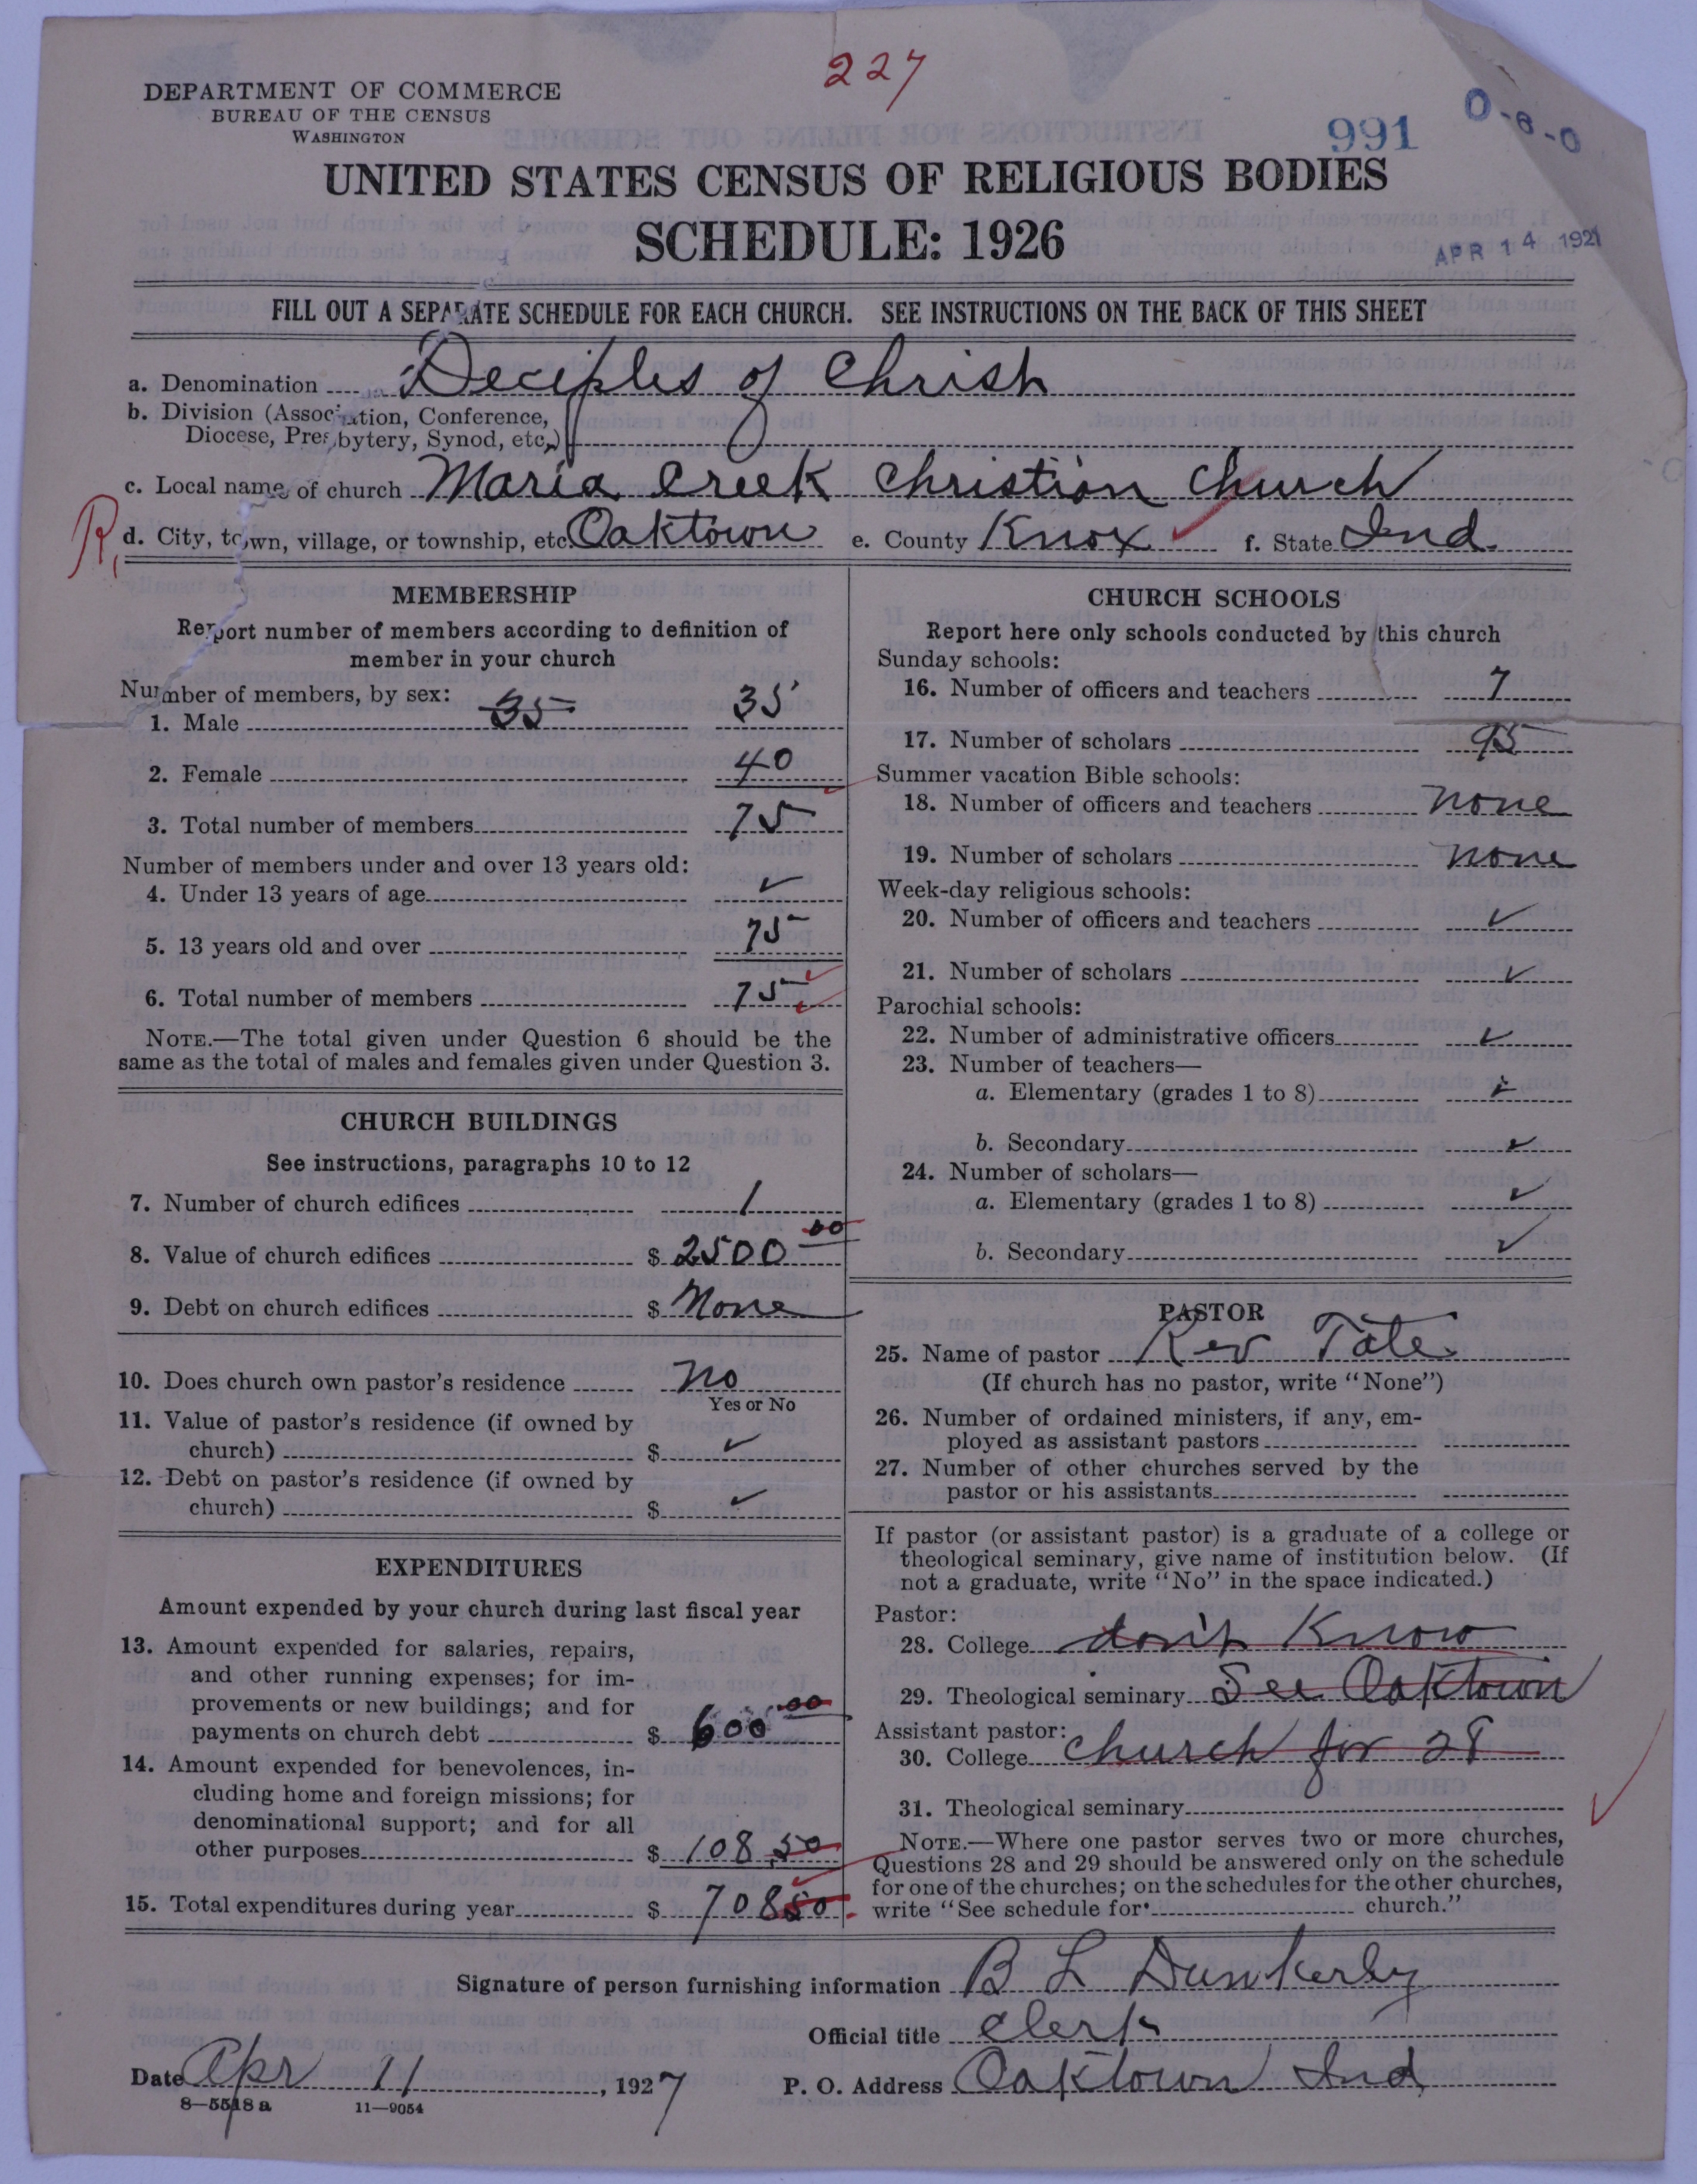 227
DEPARTMENT OF COMMERCE
BUREAU OF THE CENSUS
WASHINGTON
991
0-6-0
UNITED STATES CENSUS OF RELIGIOUS BODIES
SCHEDULE: 1926
APR 14 1927
FILL OUT A SEPARATE SCHEDULE FOR EACH CHURCH. SEE INSTRUCTIONS ON THE BACK OF THIS SHEET
a. Denomination Deciples of Christ
b. Division (Association, Conference,
Diocese, Presbytery, Synod, etc.)
c. Local name of church Maria Creek Christian Church
R. d. City, town, village, or township, etc. Oaktown e. County Knox f. State Ind.
MEMBERSHIP
Report number of members according to definition of
member in your church
Number of members, by sex:
1. Male 35 35
2. Female 40
3. Total number of members 75
Number of members under and over 13 years old:
4. Under 13 years of age ✓
5. 13 years old and over 75
6. Total number of members 75
NOTE.—The total given under Question 6 should be the
same as the total of males and females given under Question 3.
CHURCH BUILDINGS
See instructions, paragraphs 10 to 12
7. Number of church edifices 1
8. Value of church edifices $ 2500 00
9. Debt on church edifices $ None
10. Does church own pastor's residence no
Yes or No
11. Value of pastor's residence (if owned by
church) $ ✓
12. Debt on pastor's residence (if owned by
church) $ ✓
EXPENDITURES
Amount expended by your church during last fiscal year
13. Amount expended for salaries, repairs,
and other running expenses; for im-
provements or new buildings; and for
payments on church debt $ 600 00
14. Amount expended for benevolences, in-
cluding home and foreign missions; for
denominational support; and for all
other purposes $ 108.50
15. Total expenditures during year $ 708 50
CHURCH SCHOOLS
Report here only schools conducted by this church
Sunday schools:
16. Number of officers and teachers 7
17. Number of scholars 95
Summer vacation Bible schools:
18. Number of officers and teachers none
19. Number of scholars none
Week-day religious schools:
20. Number of officers and teachers ✓
21. Number of scholars ✓
Parochial schools:
22. Number of administrative officers ✓
23. Number of teachers—
a. Elementary (grades 1 to 8) ✓
b. Secondary ✓
24. Number of scholars—
a. Elementary (grades 1 to 8) ✓
b. Secondary ✓
PASTOR
25. Name of pastor Rev Tate
(If church has no pastor, write "None")
26. Number of ordained ministers, if any, em-
ployed as assistant pastors
27. Number of other churches served by the
pastor or his assistants
If pastor (or assistant pastor) is a graduate of a college or
theological seminary, give name of institution below. (If
not a graduate, write "No" in the space indicated.)
Pastor:
28. College don't Know
29. Theological seminary See Oaktown
Assistant pastor:
30. College church for 28
31. Theological seminary
NOTE.—Where one pastor serves two or more churches,
Questions 28 and 29 should be answered only on the schedule
for one of the churches; on the schedules for the other churches,
write "See schedule for church."
Signature of person furnishing information B L Dunkerly
Official title Clerk
Date Apr 11, 1927 P. O. Address Oaktown Ind
8—5518 a 11—9054